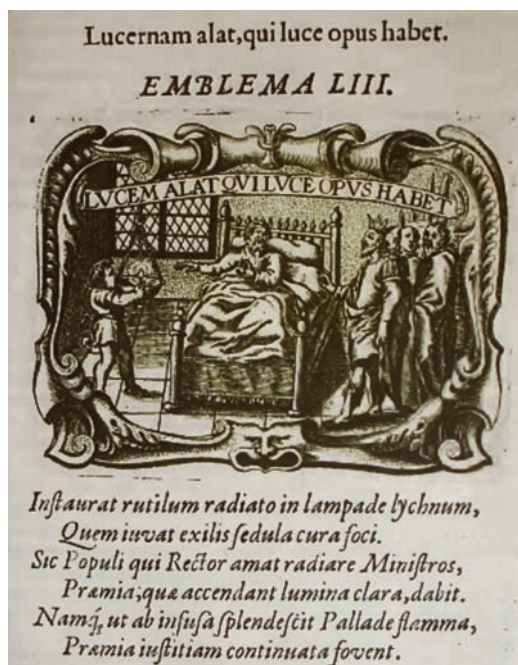 Lucernam alat, qui luce opus habet.
EMBLEMA LIII.
LVCEM ALAT QVI LVCE OPVS HABET
Inſtaurat rutilum radiato in lampade lychnum,
Quem iuvat exilis ſedula cura foci.
Sic Populi qui Rector amat radiare Miniſtros,
Præmia; quæ accendant lumina clara, dabit.
Namq́, ut ab infuſa ſplendeſcit Pallade flamma,
Præmia iuſtitiam continuata fovent.